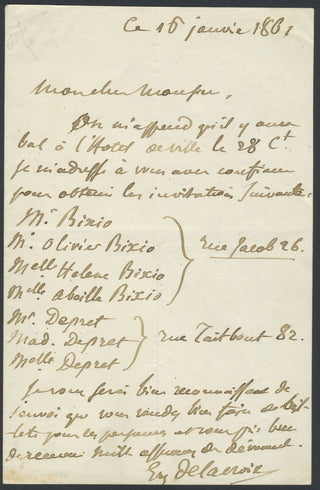 Ce 16 janvie 1861
Mon cher Monsieur,
On m'apprend qu'il y aura
bal à l'Hotel de ville le 28 Ct.
Je m'adresse à vous avec confiance
pour obtenir les invitations suivantes:
Mr. Bixio
Mr. Olivier Bixio
Melle Helene Bixio
Melle abaille Bixio
rue Jacob 26.
Mr. Depret
Mad. Depret
Melle Depret
rue Taitbout 82.
Je vous serai bien reconnaissant de
l'envoi que vous voudrez bien faire de
pour les personnes et vous prie bien
de recevoir mille assurances de dévoument.
Eug Delacroix